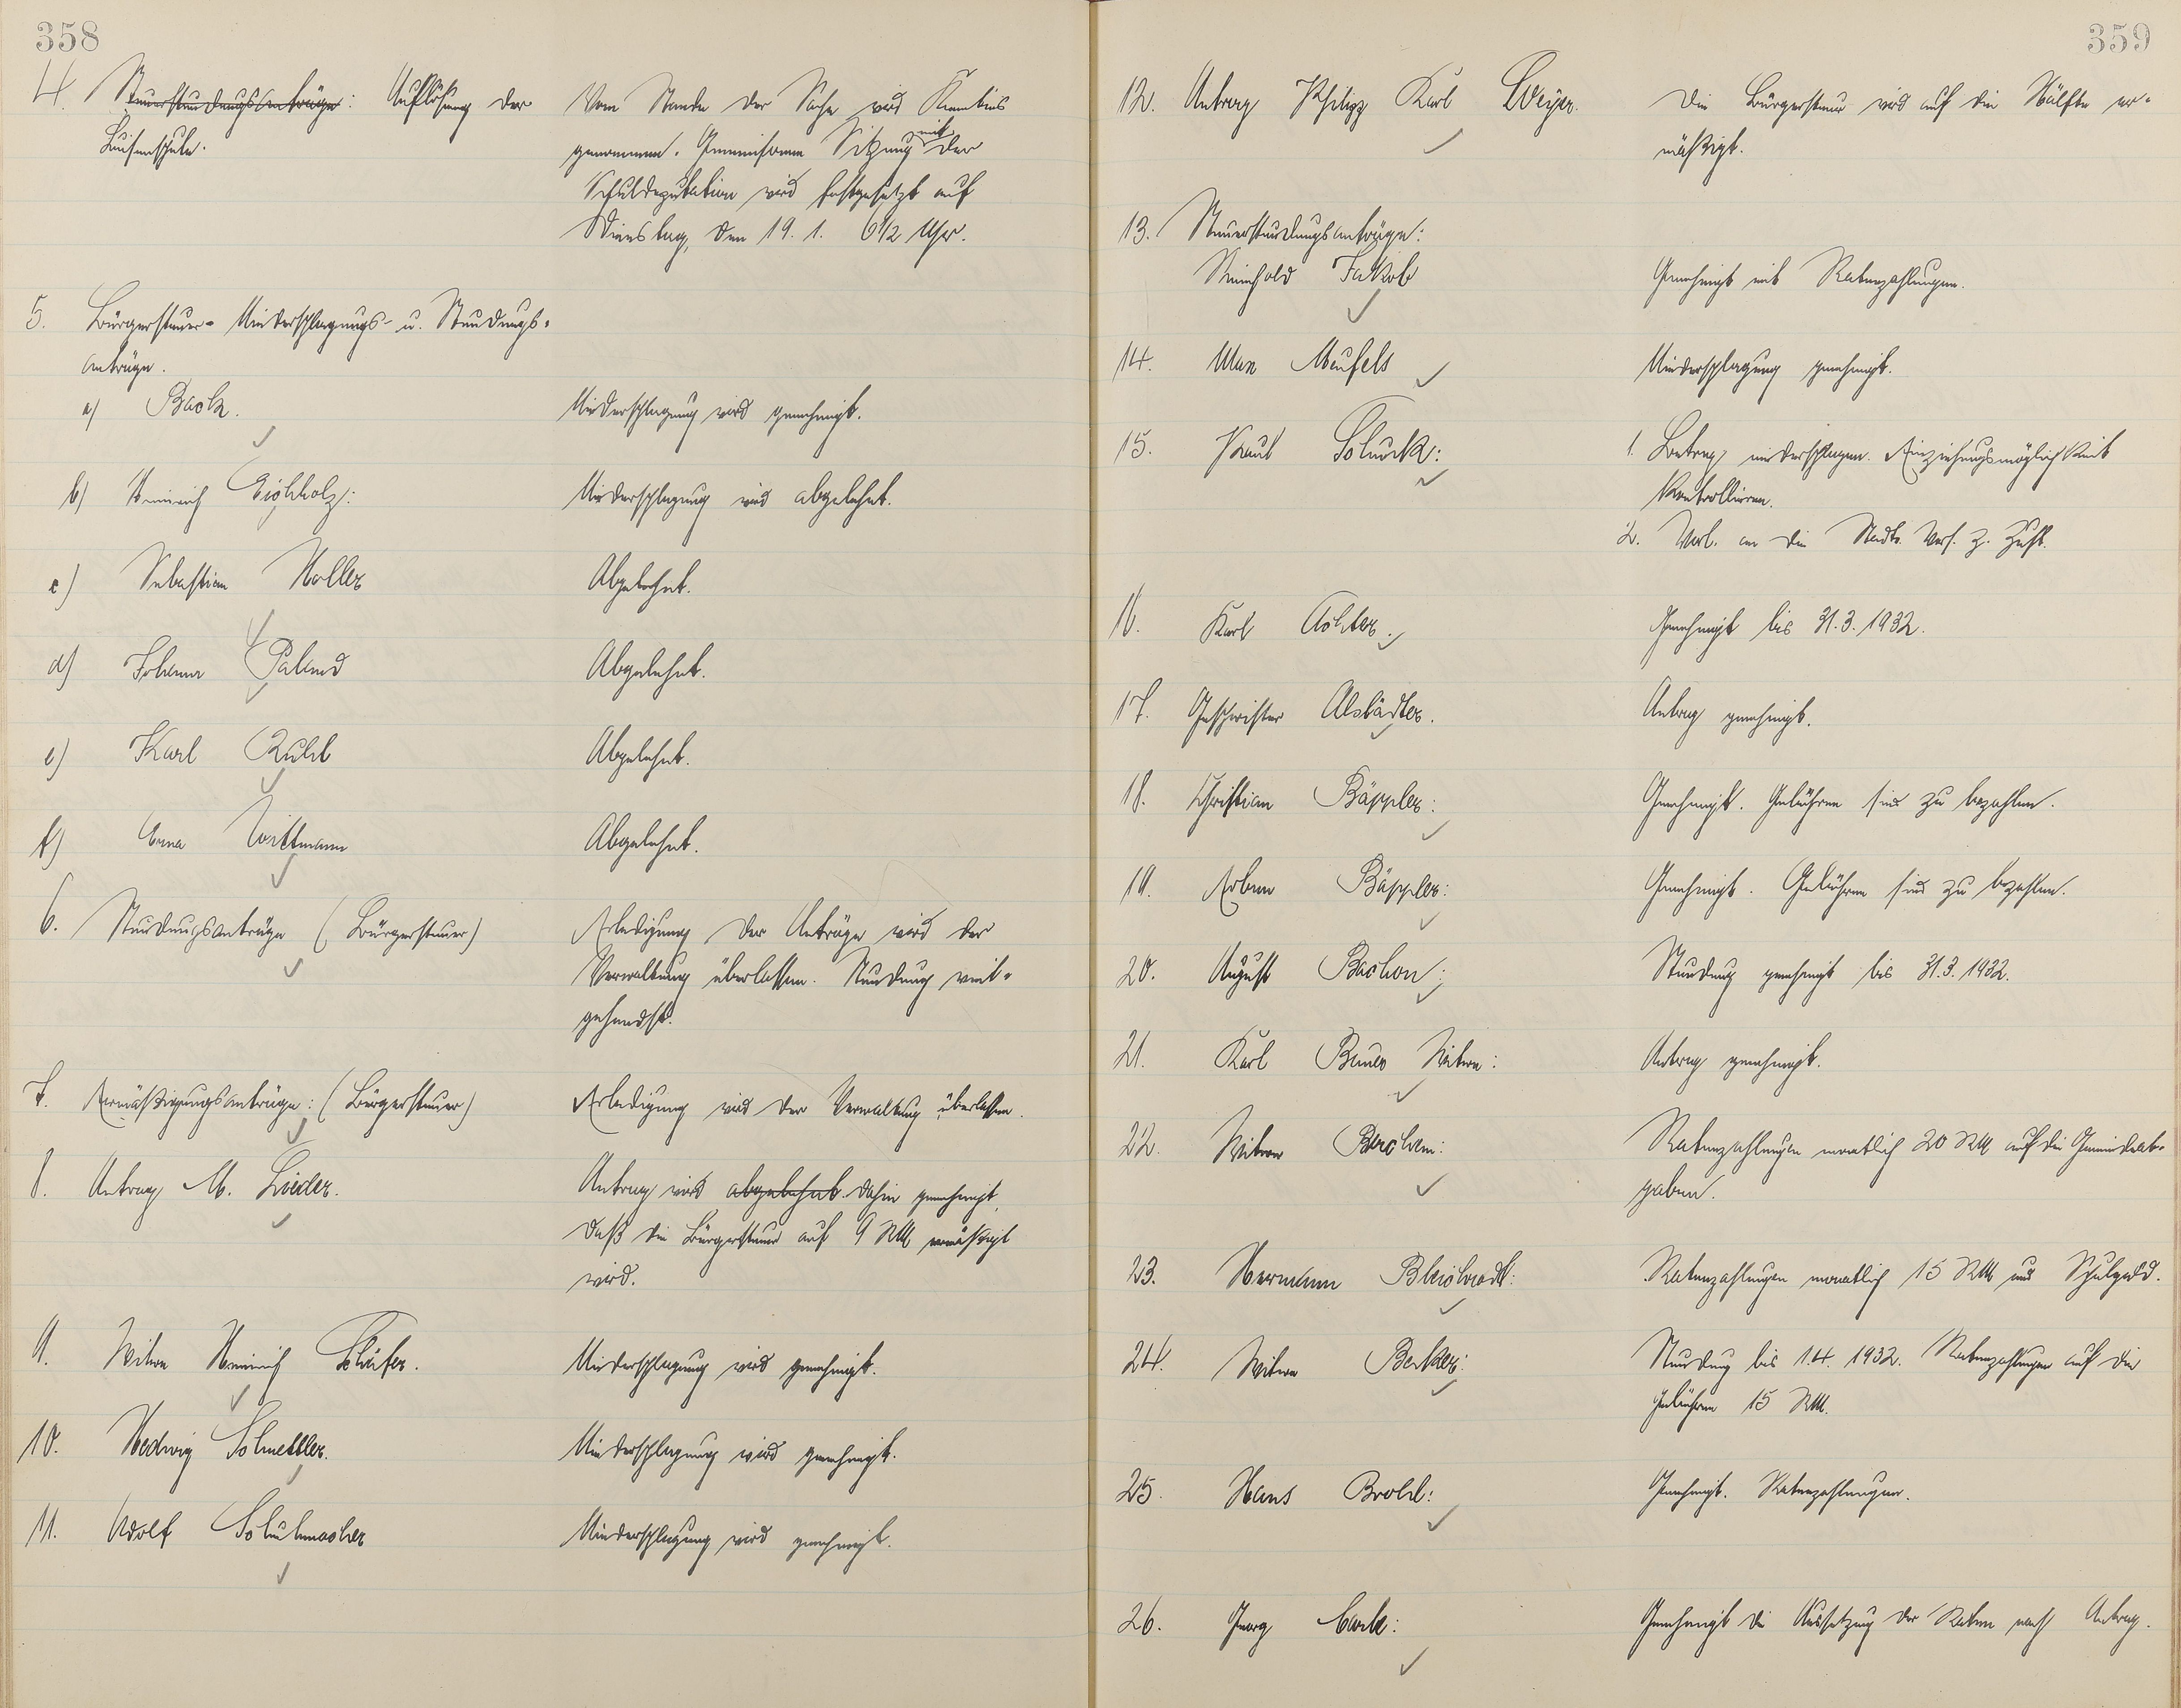 358
4. Steuerstundungsanträge: Auflösung der
Luisenschule.
Vom Stande der Sache wird Kenntnis
genommen. Gemeinsame Sitzung mit der
Schuldeputation wird festgesetzt auf
Dienstag, den 19. 1. 6 1/2 Uhr.
5. Bürgersteuer- Niederschlagungs- u. Stundungs-
anträge.
a) Back.
Niederschlagung wird genehmigt.
b) Heinrich Eichholz:
Niederschlagung wird abgelehnt.
c) Sebastian Holler
Abgelehnt.
d) Johann Paland
Abgelehnt.
e) Karl Ruhl
Abgelehnt.
f) Anna Wittmann
Abgelehnt.
6. Stundungsanträge (Bürgersteuer)
Erledigung der Anträge wird der
Verwaltung überlassen. Stundung weit-
gehendst.
7. Ermäßigungsanträge: (Bürgersteuer)
Erledigung wird der Verwaltung überlassen.
8. Antrag M. Lieder.
Antrag wird abgelehnt. dahin genehmigt,
daß die Bürgersteuer auf 9 RM ermäßigt
wird.
9. Witwe Heinrich Schäfer.
Niederschlagung wird genehmigt.
10. Hedwig Schmettler.
Niederschlagung wird genehmigt.
11. Adolf Schuhmacher
Niederschlagung wird genehmigt.
359
12. Antrag Philipp Karl Weyer.
Die Bürgersteuer wird auf die Hälfte er-
mäßigt.
13. Steuerstundungsanträge:
Reinhold Jakob
Genehmigt mit Ratenzahlungen.
14. Max Meufels
Niederschlagung genehmigt.
15. Paul Schuck:
1. Betrag niederschlagen. Einziehungsmöglichkeit
kontrollieren.
2. Vorl. an die Stadtv. Vers. z. Zust.
16. Karl Achter.
Genehmigt bis 31.3.1932.
17. Geschwister Alstädter.
Antrag genehmigt.
18. Christian Bäppler:
Genehmigt. Gebühren sind zu bezahlen.
19. Erben Bäppler:
Genehmigt. Gebühren sind zu bezahlen.
20. August Bachon:
Stundung genehmigt bis 31.3.1932.
21. Karl Witwe:
Antrag genehmigt.
22. Witwe Berchem:
Ratenzahlungen monatlich 20 RM auf die Gemeindeab-
gaben.
23. Hermann
Ratenzahlungen monatlich 15 RM und Schulgeld.
24. Witwe Berker:
Stundung bis 1.4. 1932. Ratenzahlungen auf die
Gebühren 15 RM.
25. Hans Brohl:
Genehmigt. Ratenzahlungen.
26. Georg
Genehmigt die Aussetzung der Raten nach Antrag.